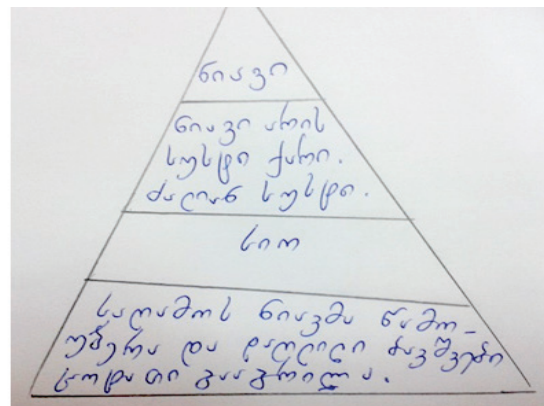 ნიავი
ნიავი არის
სუსტი ქარი.
ძალიან სუსტი.
სიო
საღამოს ნიავმა წამო-
უბერა და დაღლილი ბავშვები
ცოტათი გააგრილა.